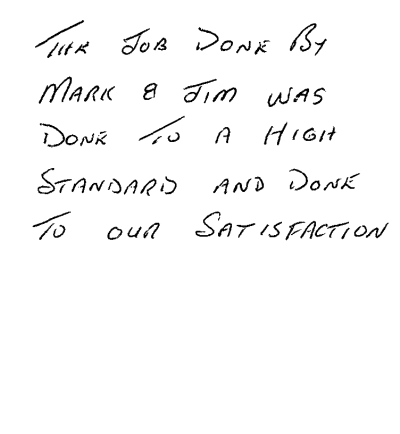 THE JOB DONE BY
MARK & JIM WAS
DONE TO A HIGH
STANDARD AND DONE
TO OUR SATISFACTION